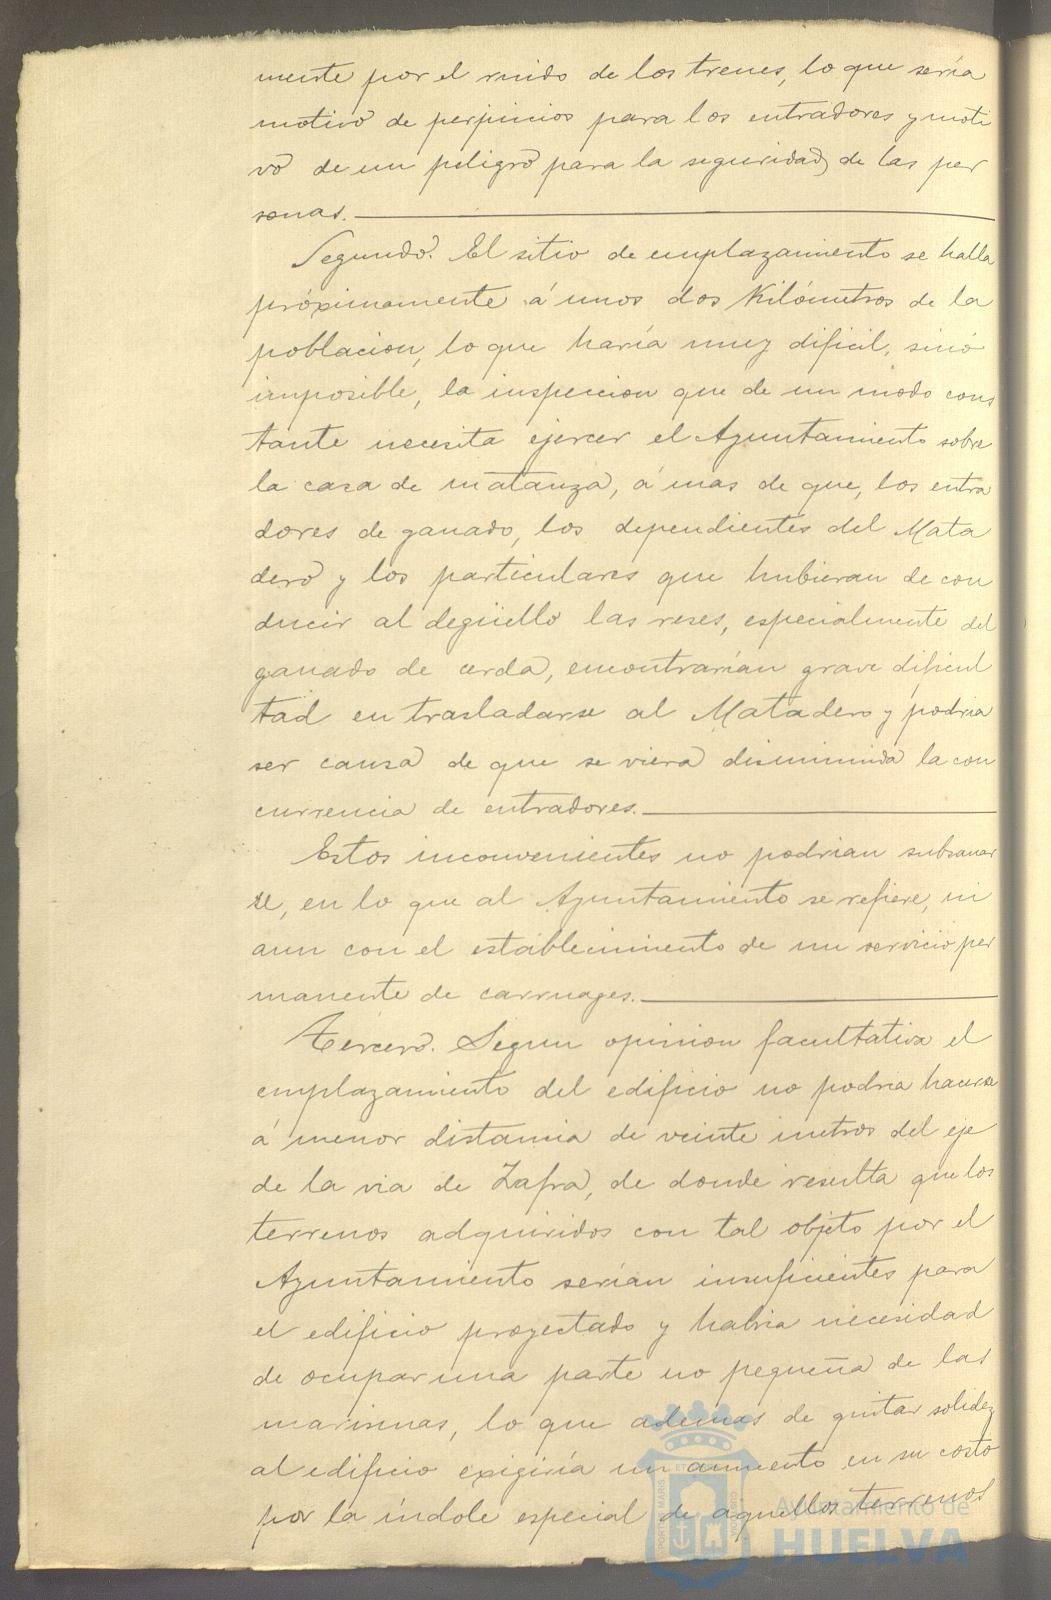 mente por el ruido de los trenes, lo que sería
motivo de perjuicios para los entradores y moti
vo de un peligro para la seguridad de las per
sonas.
Segundo. El sitio de emplazamiento se halla
próximamente á unos dos Kilómetros de la
poblacion, lo que haría muy dificil, sinó
imposible, la inspeccion que de un modo cons
tante necesita ejercer el Ayuntamiento sobre
la casa de matanza, á mas de que, los entra
dores de ganado, los dependientes del Mata
dero y los particulares que hubieran de con
ducir al degüello las reses, especialmente del
ganado de cerda, encontrarían grave dificul
tad en trasladarse al Matadero y podria
ser causa de que se viera disminuida la con
currencia de entradores.
Estos inconvenientes no podrian subsanar
se, en lo que al Ayuntamiento se refiere, ni
aun con el establecimiento de un servicio per
manente de carruages.
Tercero. Segun opinion facultativa el
emplazamiento del edificio no podria hacerse
á menor distancia de veinte metros del eje
de la via de Zafra, de donde resulta que los
terrenos adquiridos con tal objeto por el
Ayuntamiento serían insuficientes para
el edificio proyectado y habria necesidad
de ocupar una parte no pequeña de las
marismas, lo que ademas de quitar solidez
al edificio exigiría un aumento en su costo
por la índole especial de aquellos terrenos
Ayuntamiento de
HUELVA